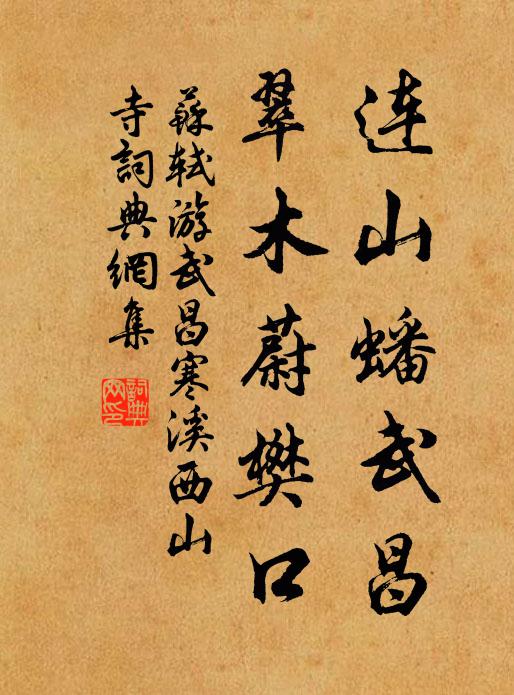 連山蟠武昌
翠木蔚樊口
蘇軾游武昌寒溪西山
寺詞典網集
詞典網印